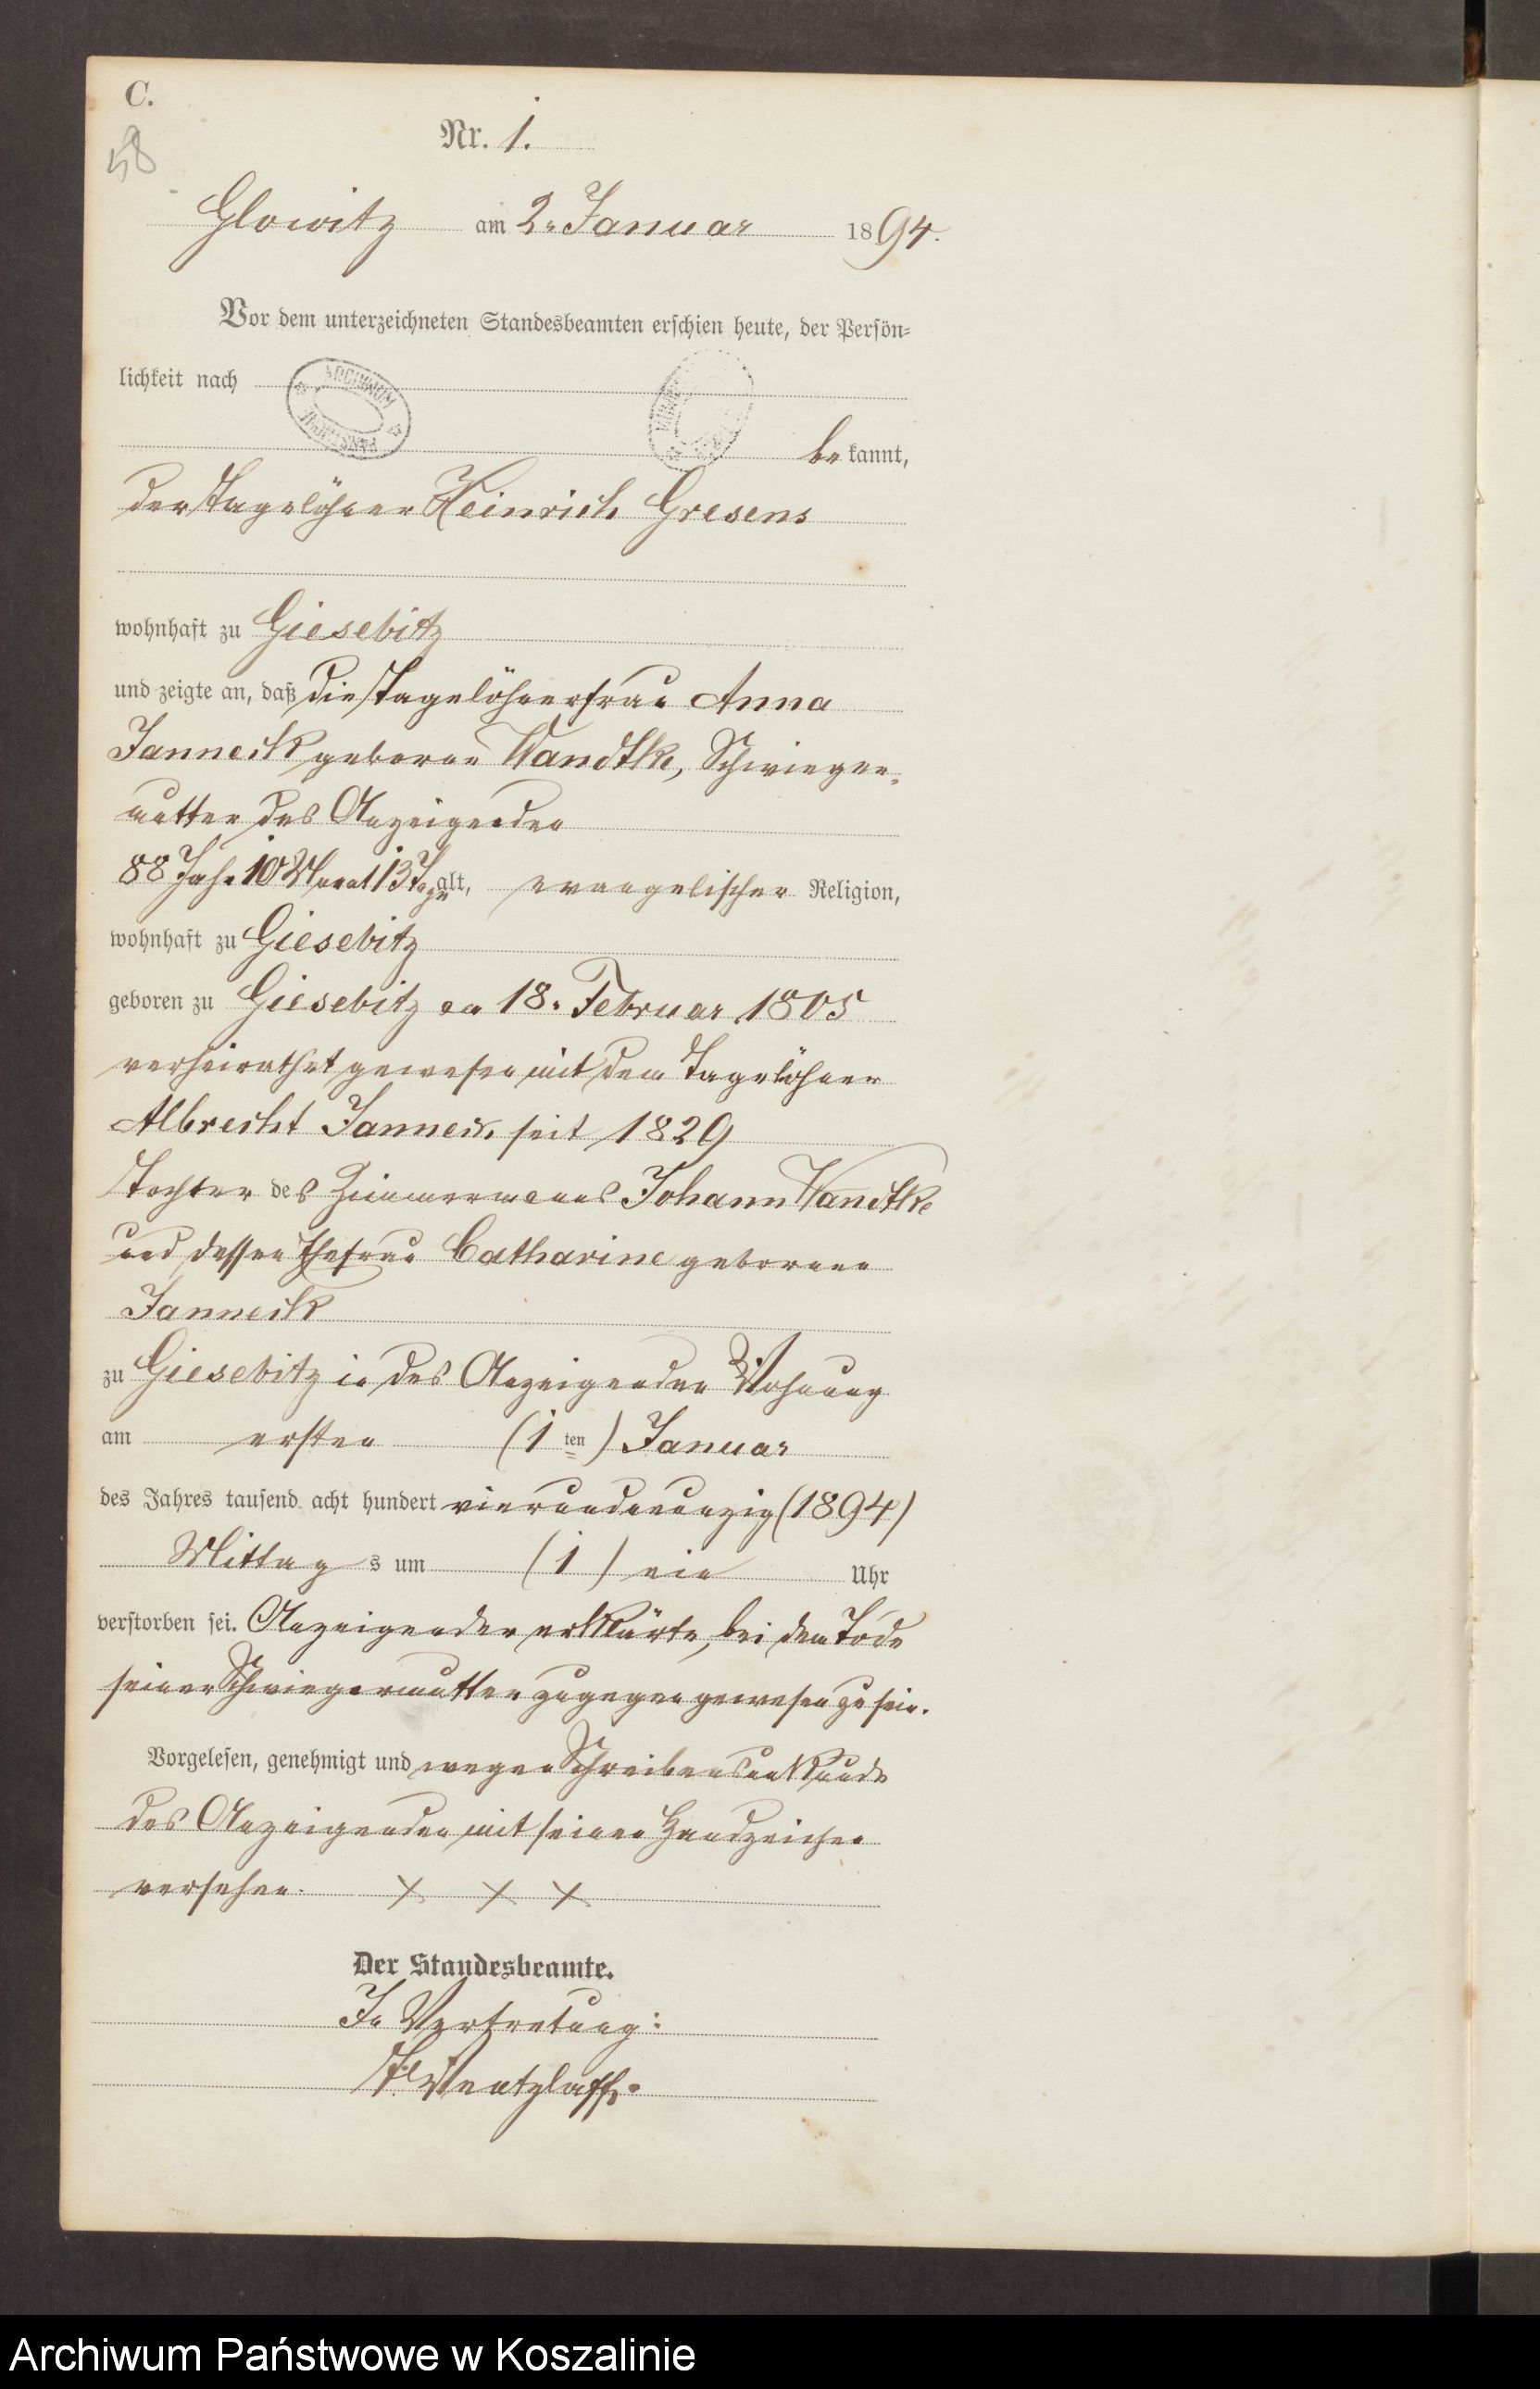 C.
58
Nr. 1.
Glowitz am 2. Januar 1894.
Vor dem unterzeichneten Standesbeamten erschien heute, der Persön-
lichkeit nach
ARCHIWUM
PAŃSTWOWE
be kannt,
der Tagelöhner Heinrich Gresens
wohnhaft zu Giesebitz
und zeigte an, daß die Tagelöhnerfrau Anna
Janneck geborne Wandtke, Schwieger-
mutter des Anzeigenden
88 Jahr 10 Monat 13 Tage alt, evangelischer Religion,
wohnhaft zu Giesebitz
geboren zu Giesebitz am 18. Februar 1805
verheirathet gewesen mit dem Tagelöhner
Albrecht Janneck, seit 1829
Tochter des Zimmermanns Johann Wandtke
und dessen Ehefrau Catharine gebornen
Janneck
zu Giesebitz in des Anzeigenden Wohnung
am ersten (1 ten) Januar
des Jahres tausend acht hundert vierundneunzig (1894)
Mittag s um (1) ein Uhr
verstorben sei. Anzeigender erklärte, bei dem Tode
seiner Schwiegermutter zugegen gewesen zu sein.
Vorgelesen, genehmigt und wegen Schreibensunkunde
des Anzeigenden mit seinen Handzeichen
versehen. X X X
Der Standesbeamte.
In Vertretung:
Wentzlaff.
Archiwum Państwowe w Koszalinie